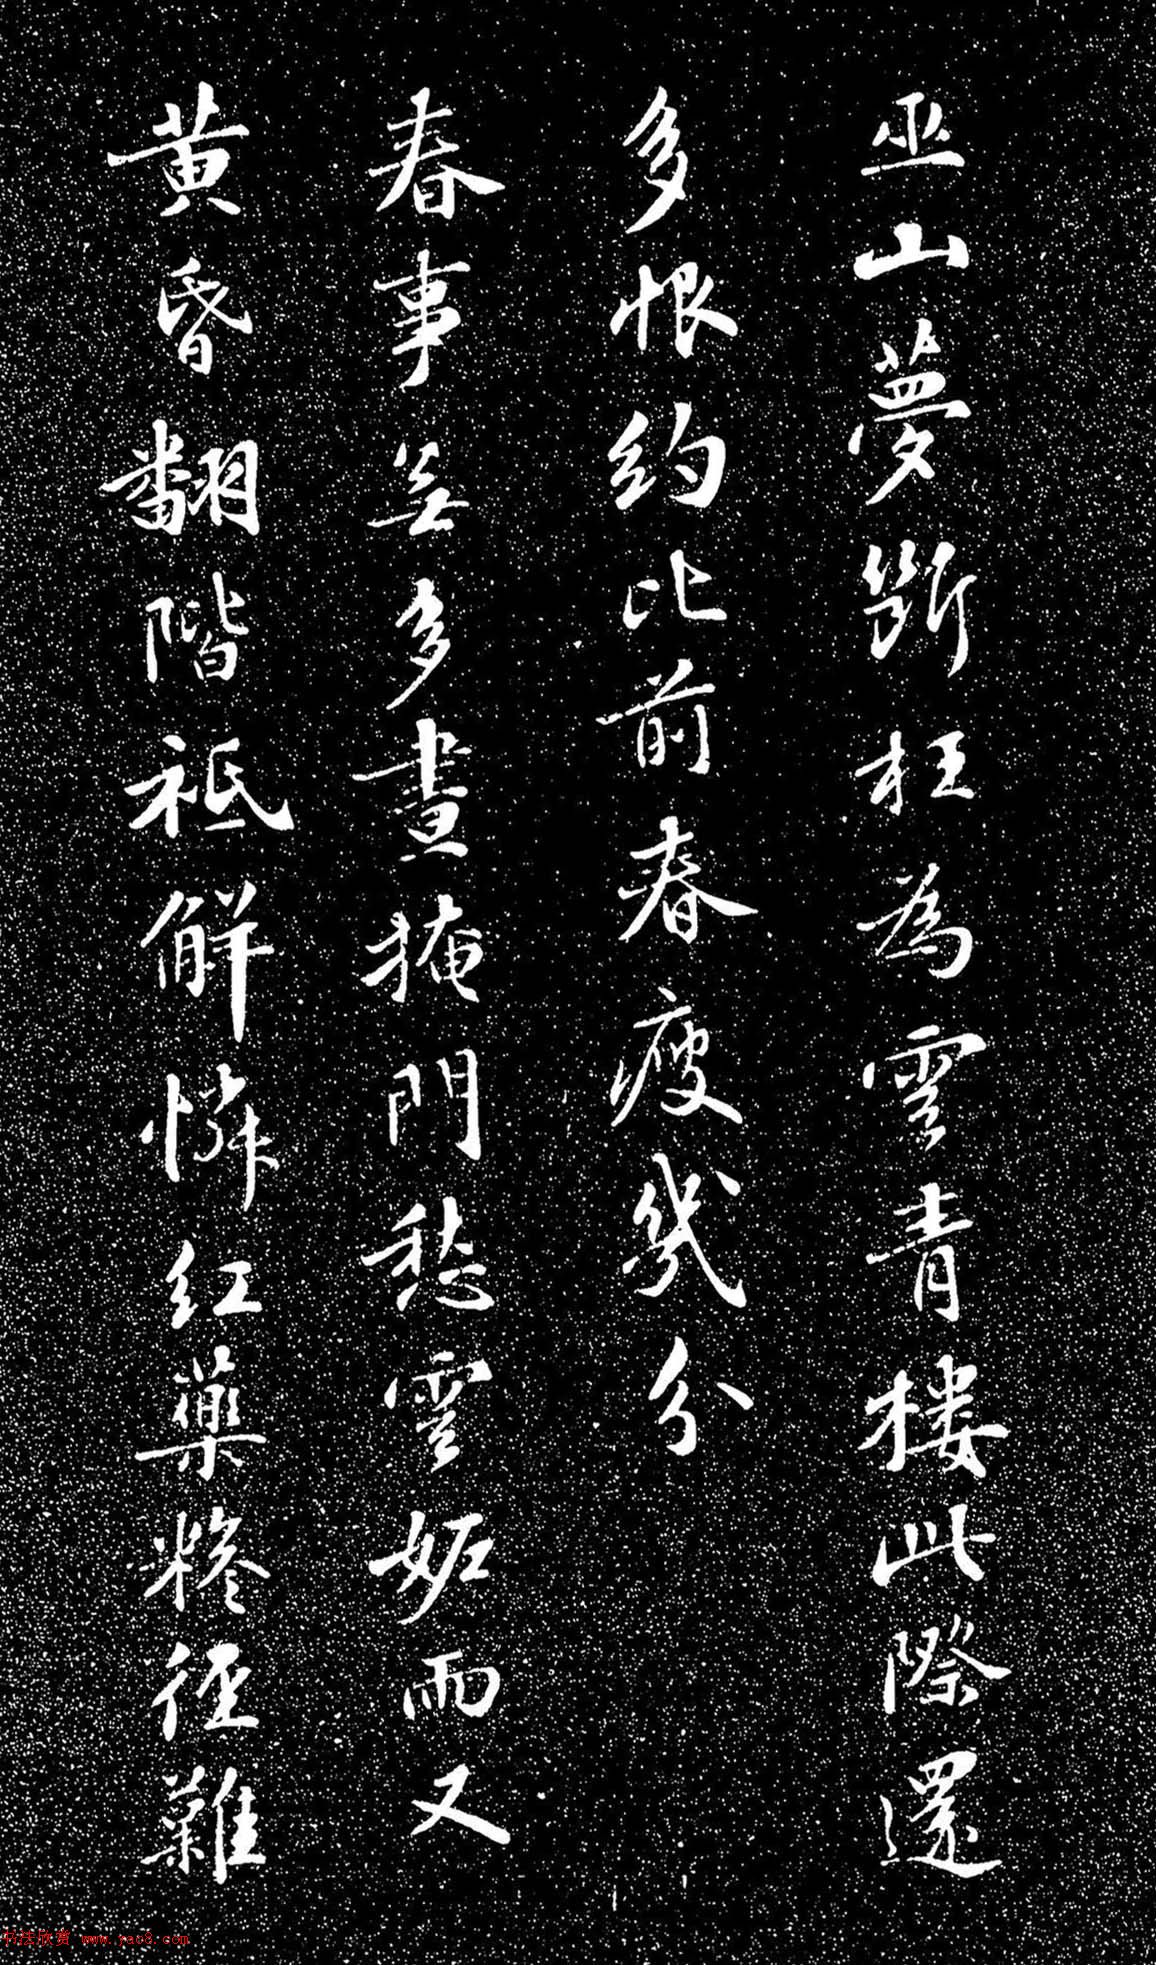 巫山夢斷枉為雲青樓此際還
多恨約比前春瘦幾分
春事無多晝掩門愁雲妬雨又
黃昏翻階祗解憐紅藥糁徑難
书法欣赏 www.yac8.com